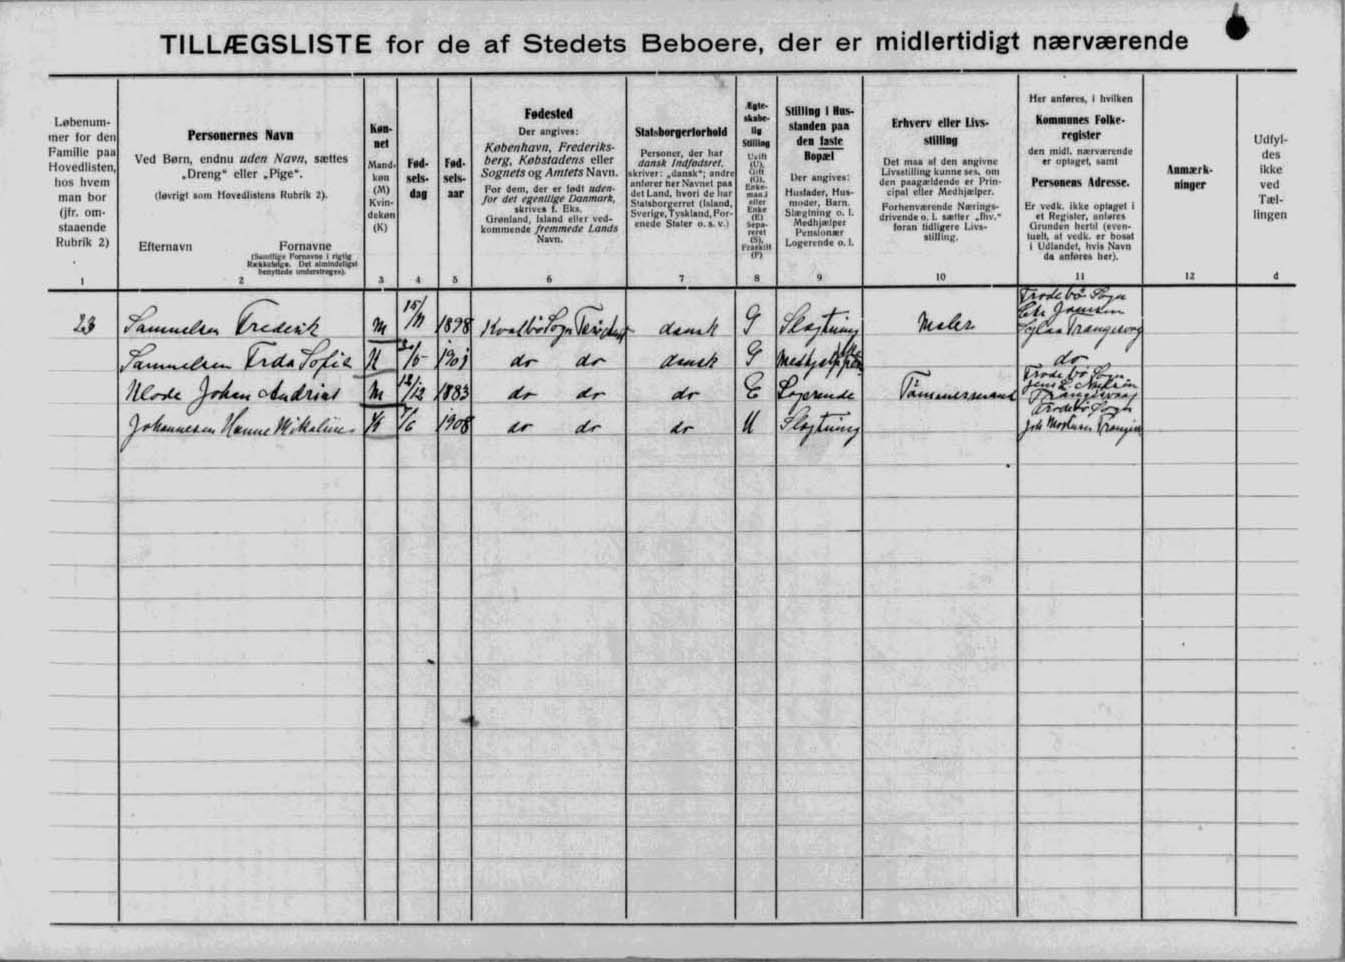 TILLÆGSLISTE for de af Stedets Beboere, der er midlertidigt nærværende
Løbenum-
mer for den
Familie paa
Hovedlisten,
hos hvem
man bor
(jfr. om-
staaende
Rubrik 2)
1
Personernes Navn
Ved Børn, endnu uden Navn, sættes
„Dreng“ eller „Pige“.
(Iøvrigt som Hovedlistens Rubrik 2).
Efternavn
Fornavne
(Samtlige Fornavne i rigtig
Rækkefølge. Det almindeligst
benyttede understreges).
2
Køn-
net
Mand-
køn
(M)
Kvin-
dekøn
(K)
3
Fød-
sels-
dag
4
Fød-
sels-
aar
5
Fødested
Der angives:
København, Frederiks-
berg, Købstadens eller
Sognets og Amtets Navn.
For dem, der er født uden-
for det egentlige Danmark,
skrives f. Eks.
Grønland, Island eller ved-
kommende fremmede Lands
Navn.
6
Statsborgerforhold
Personer, der har
dansk Indfødsret,
skriver: „dansk“; andre
anfører her Navnet paa
det Land, hvori de har
Statsborgerret (Island,
Sverige, Tyskland, For-
enede Stater o. s. v.)
7
Ægte-
skabe-
lig
Stilling
Ugift
(U),
Gift
(G),
Enke-
mand
eller
Enke
(E)
Sepa-
reret
(S),
Fraskilt
(F)
8
Stilling i Hus-
standen paa
den faste
Bopæl
Der angives:
Husfader, Hus-
moder, Barn.
Slægtning o. l.
Medhjælper
Pensionær
Logerende o. l.
9
Erhverv eller Livs-
stilling
Det maa af den angivne
Livsstilling kunne ses, om
den paagældende er Prin-
cipal eller Medhjælper.
Forhenværende Nærings-
drivende o. l. sætter „fhv.“
foran tidligere Livs-
stilling.
10
Her anføres, i hvilken
Kommunes Folke-
register
den midl. nærværende
er optaget, samt
Personens Adresse.
Er vedk. ikke optaget i
et Register, anføres
Grunden hertil (even-
tuelt, at vedk. er bosat
i Udlandet, hvis Navn
da anføres her).
11
Anmærk-
ninger
12
Udfyl-
des
ikke
ved
Tæl-
lingen
d
23 Samuelsen Frederik M 15/11 1898 Kvalbø Sogn dansk G Slægtning Maler
Samuelsen Frda Sofie K 30/5 1901 do do dansk G do
Johan Andrias M 12/12 1883 do do do E Logerende Tømmermand
Johannesen Hanne Mikaline K 7/6 1908 do do do U Slægtning